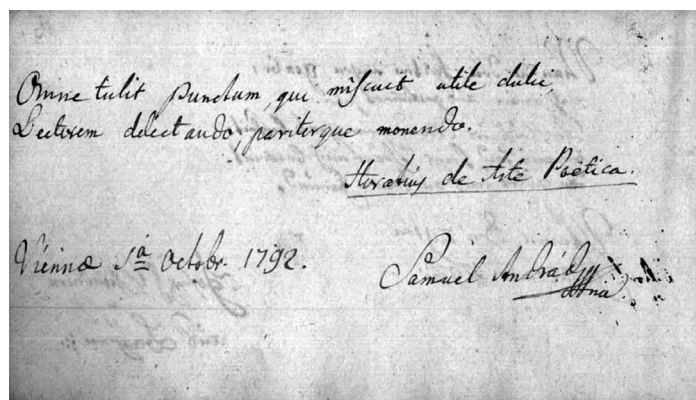 Omne tulit punctum, qui miscuit utile dulci,
Lectorem delectando, pariterque monendo.
Horatius de Arte Poëtica.
Viennæ 1ª Octobr. 1792.
Samuel András